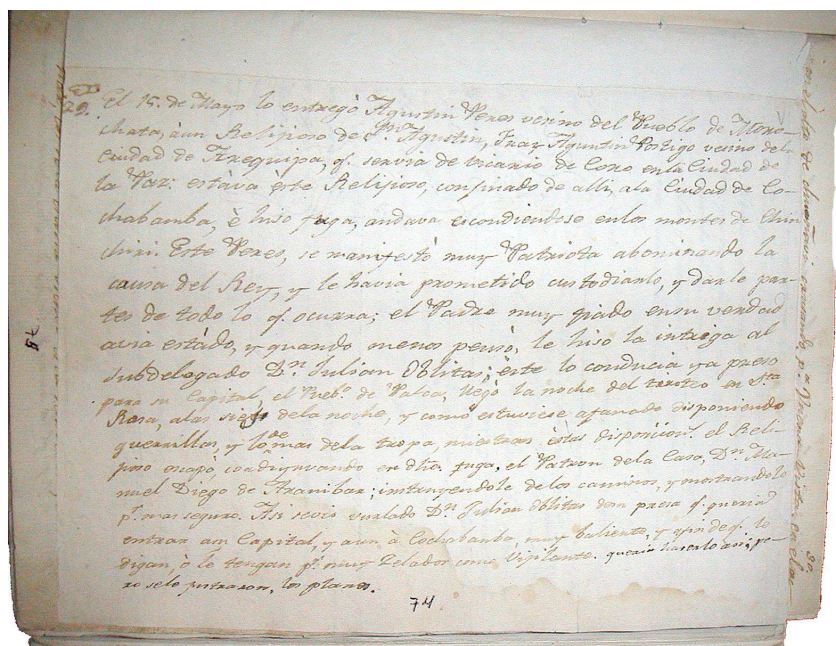 29. El 15. de Mayo lo entregò Agustin Peres vecino del Pueblo de Moro-
chata, à un Religioso de Sn. Agustin, Fray Agustin Postigo vecino de la
Ciudad de Arequipa, qe. servia de vicario de Coro en la Ciudad de
la Paz: estàva èste Religioso, confinado de alli, a la Ciudad de Co-
chabamba, è hiso fuga, andava escondiendose en los montes de Chin
chiri. Este Peres, se manifestò muy Patriota abominando la
causa del Rey, y le havia prometido custodiarlo, y darle par-
tes de todo lo qe. ocurra; el Padre muy fiado en su verdad
avia estàdo, y quando menos pensò, le hiso la intriga al
subdelegado Dn. Julian Oblitas; èste lo conducia ya preso
para su Capital, el Pueblo. de Palca, llegò la noche del tiroteo en Sta.
Rosa, a las siete de la noche, y como estuviese afanado disponiendo
guerrillas, y lo demas de la tropa, mientras èstas disposicions. el Reli-
gioso escapò, coadyuvando en dha fuga, el Patron de la Casa, Dn. Ma-
nuel Diego de Aranibar; instruyendole de los caminos, y mostrandole
pr. mas seguro. Asi se vio burlado Dn. Julian Oblitas con presa qe. queria
entrar a su Capital, y aun à Cochabamba, muy baliente, y a fin de qe. le
digan, ò le tengan pr. muy zelador como vigilante. queria hacerlo asi; pe-
ro se lo frustraron, los planes.
74
79
30.